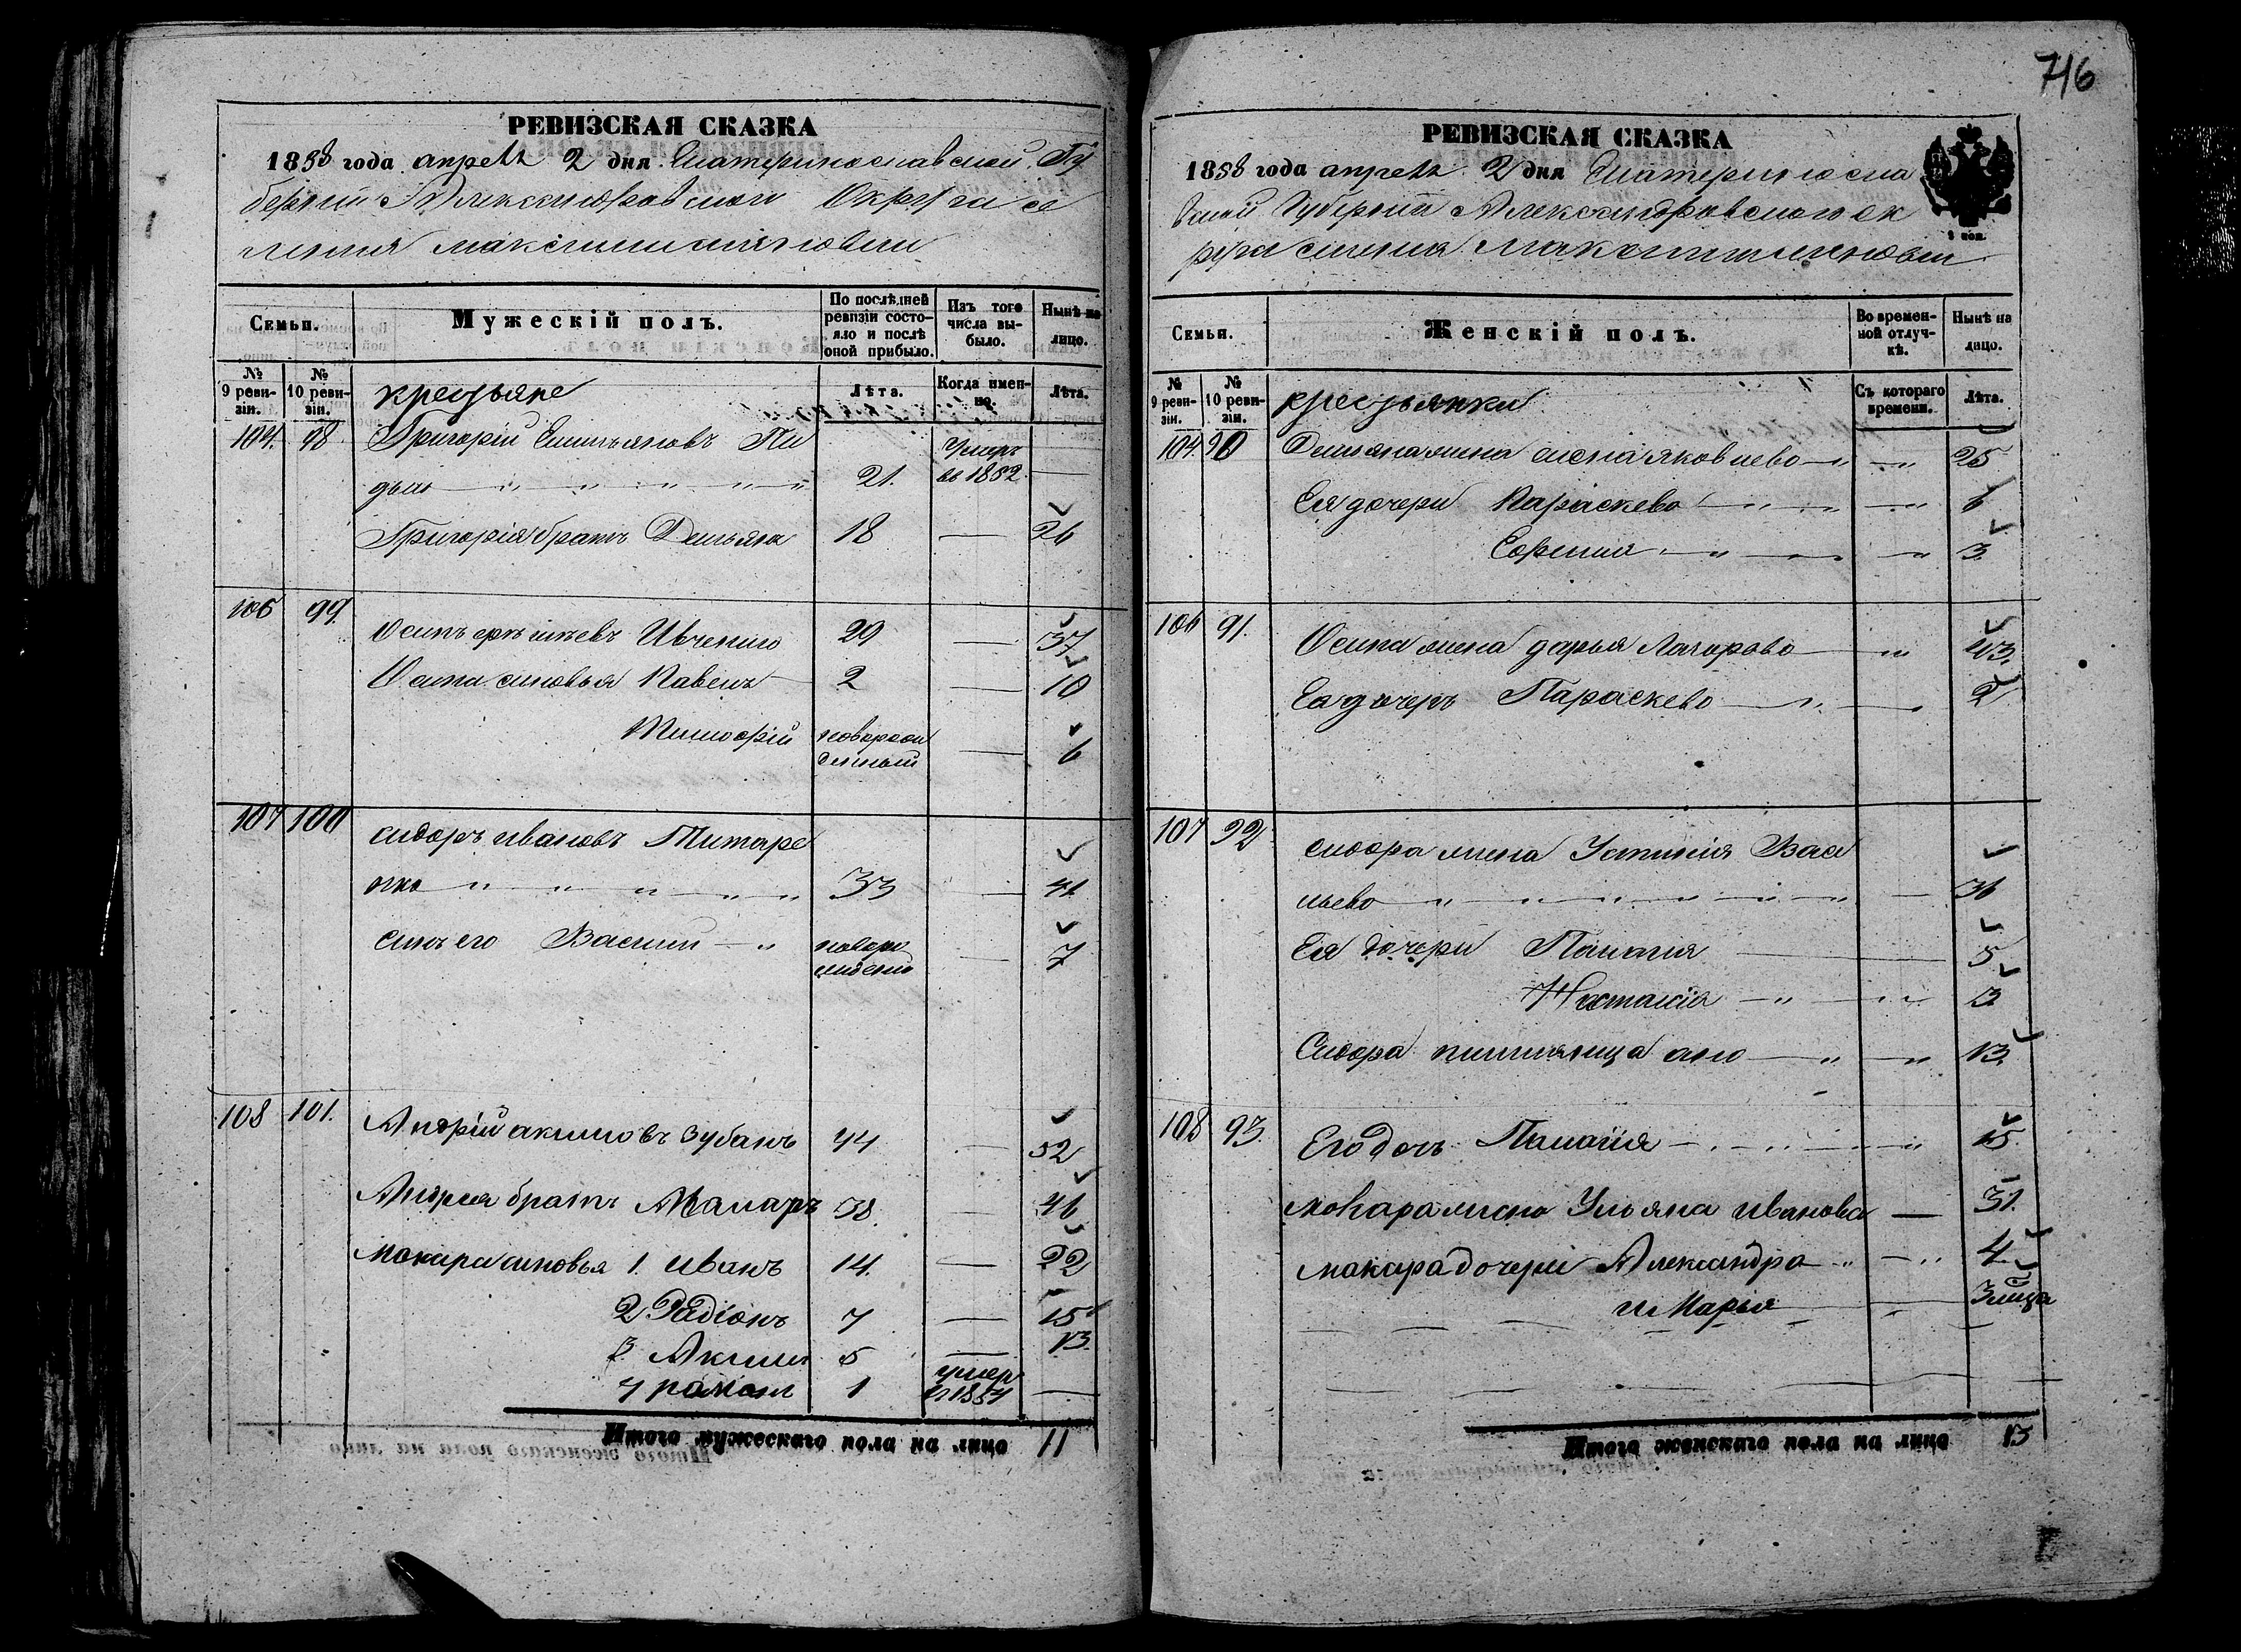 716
РЕВИЗСКАЯ СКАЗКА
1858 года апреля 2 дня Екатеринославской Гу
берніи Александровскаго Округа се
ленія Максимилияновки
Семьи.
Мужескій полъ.
По послѣдней ревизіи состояло и послѣ оной прибыло.
Изъ того числа выбыло.
Нынѣ на лицо.
№ 9 ревизіи.
№ 10 ревизіи.
крестьяне
Лѣта.
Когда именно.
Лѣта.
104. 98. Григорій Емельяновъ
21. Умеръ въ 1852 —
Григорія братъ Демьянъ 18 — 26
106 99. Осипъ Ивченко 29 — 37
Осипа сыновья Павелъ 2 — 10
Тимофій новорожденный — 6
107 100 сидоръ ивановъ Титаре
нко " " " " " 33 — 41
Сынъ его Василий — " новорожденный — 7
108 101. Андрій акимовъ Зубанъ 44 — 52
Андрея братъ Макаръ 38. — 46
Макара сыновья 1. иванъ 14. — 22
2 Радіонъ 7 — 15
3. Акимъ 5 — 13.
4 роман 1 умер в 1854 —
Итого мужескаго пола на лицо 11
РЕВИЗСКАЯ СКАЗКА
1858 года апреля 2 дня Екатериносла
вской Губерніи Александровскаго ок
руга селенія Максимилиановки
Семьи.
Женскій полъ.
Во временной отлучкѣ.
Нынѣ на лицо.
№ 9 ревизіи.
№ 10 ревизіи.
крестьянки
Съ котораго времени.
Лѣта.
104. 90 Демьяна жена елена яковлево — " — 25
Ея дочери Параскево — " — " — 6
— " — " — 3
106 91. Осипа жена дарья — " 43.
Ея дочерь Параскево — " — 2
107 92 сидора жена Устинія Васи
льево " " " " " — 36
Ея дочери Палагия — 5
Настасія — " — " 3
Сидора — " — " 13.
108 93. Его дочь Палагія — " — " 15.
макара жена Ульяна иванова — 31.
макара дочери Александра — " — " 4
и Марья — " 3 мца
Итого женскаго пола на лицо 13